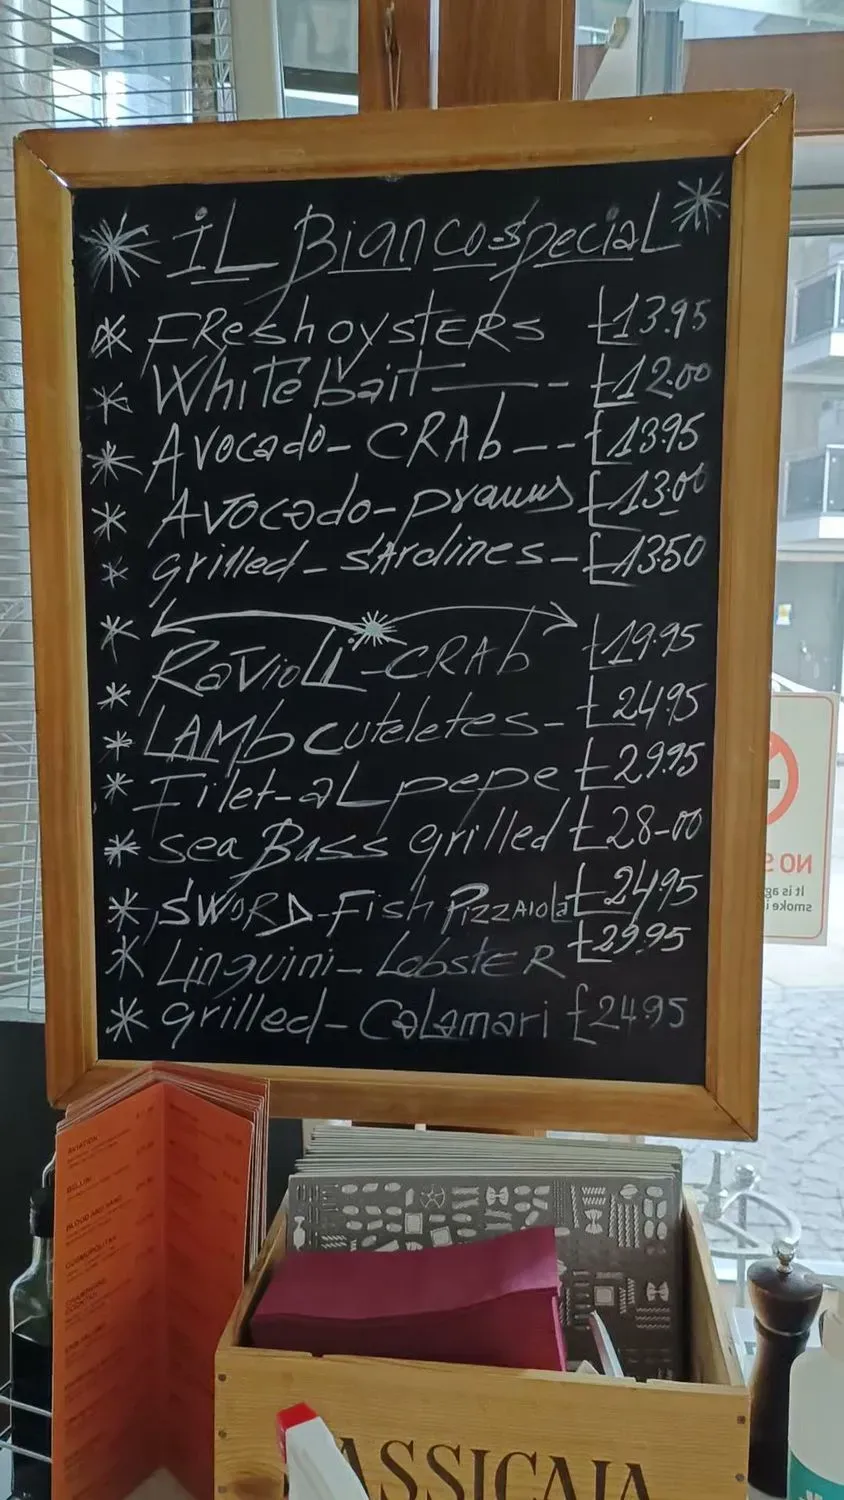 * iL Bianco-special *
* FREsh oysTERS £13.95
* WhiTebait —— -- £12.00
* Avocado- CRAb --- £13.95
* Avocado-prawns £13.00
* grilled - SArdines - £13.50
* RaViOLi-CRAb £19.95
* LAMb cuteletes- £24.95
* Filet-aL pepe £29.95
* sea BAss grilled £28-00
* SWORD-Fish PizzAiola £24.95
* Linguini- LobsTER £29.95
* grilled - CaLamari £24.95
NO S
It is ag
smoke i
AVIATION
BELLINI
BLOOD AND SAND
COSMOPOLITAN
CHAMPAGNE
ASSICAIA